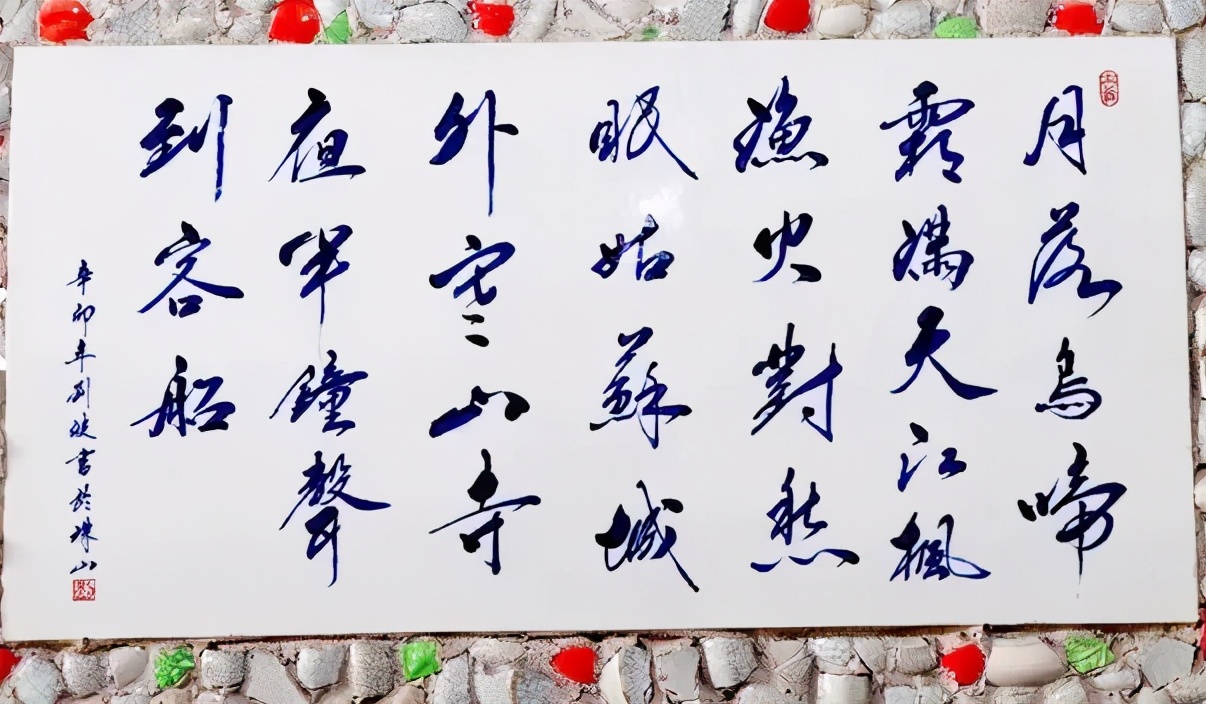 月落烏啼
霜滿天江楓
漁火對愁
眠姑蘇城
外寒山寺
夜半鐘聲
到客船
辛卯年刘波書於珠山